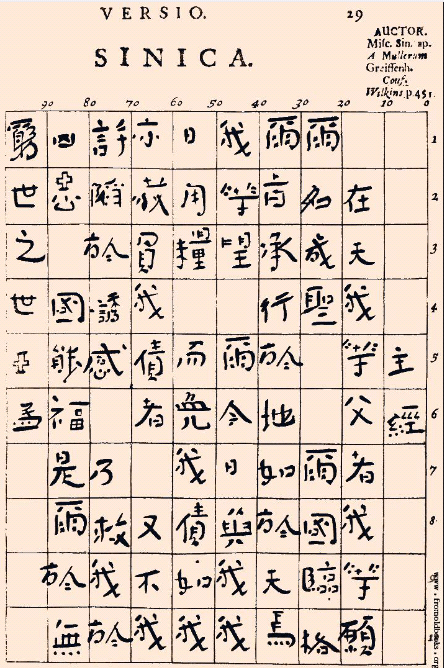 VERSIO.
29
SINICA.
AUCTOR.
Misc. Sin. ap.
A Mullerum
Greiffenh.
Conf.
Wilkins. p. 451.
90 80 70 60 50 40 30 20 10 0
主經
在天我等父者我等願
爾名成聖爾國臨格
爾旨承行於地如於天焉
我等望爾今日與我我
日用糧而免我債如我
亦赦負我債者又不我
許陷於誘感乃救我於
凶惡國能福是爾於無
窮世之世亞孟
1
2
3
4
5
6
7
8